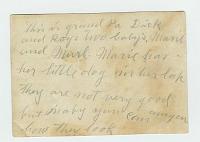 This is grand Pa Dick
and Roys two babys, Marie
and Murl Marie has
her little dog in her lap
They are not very good
but maby you can
how they look